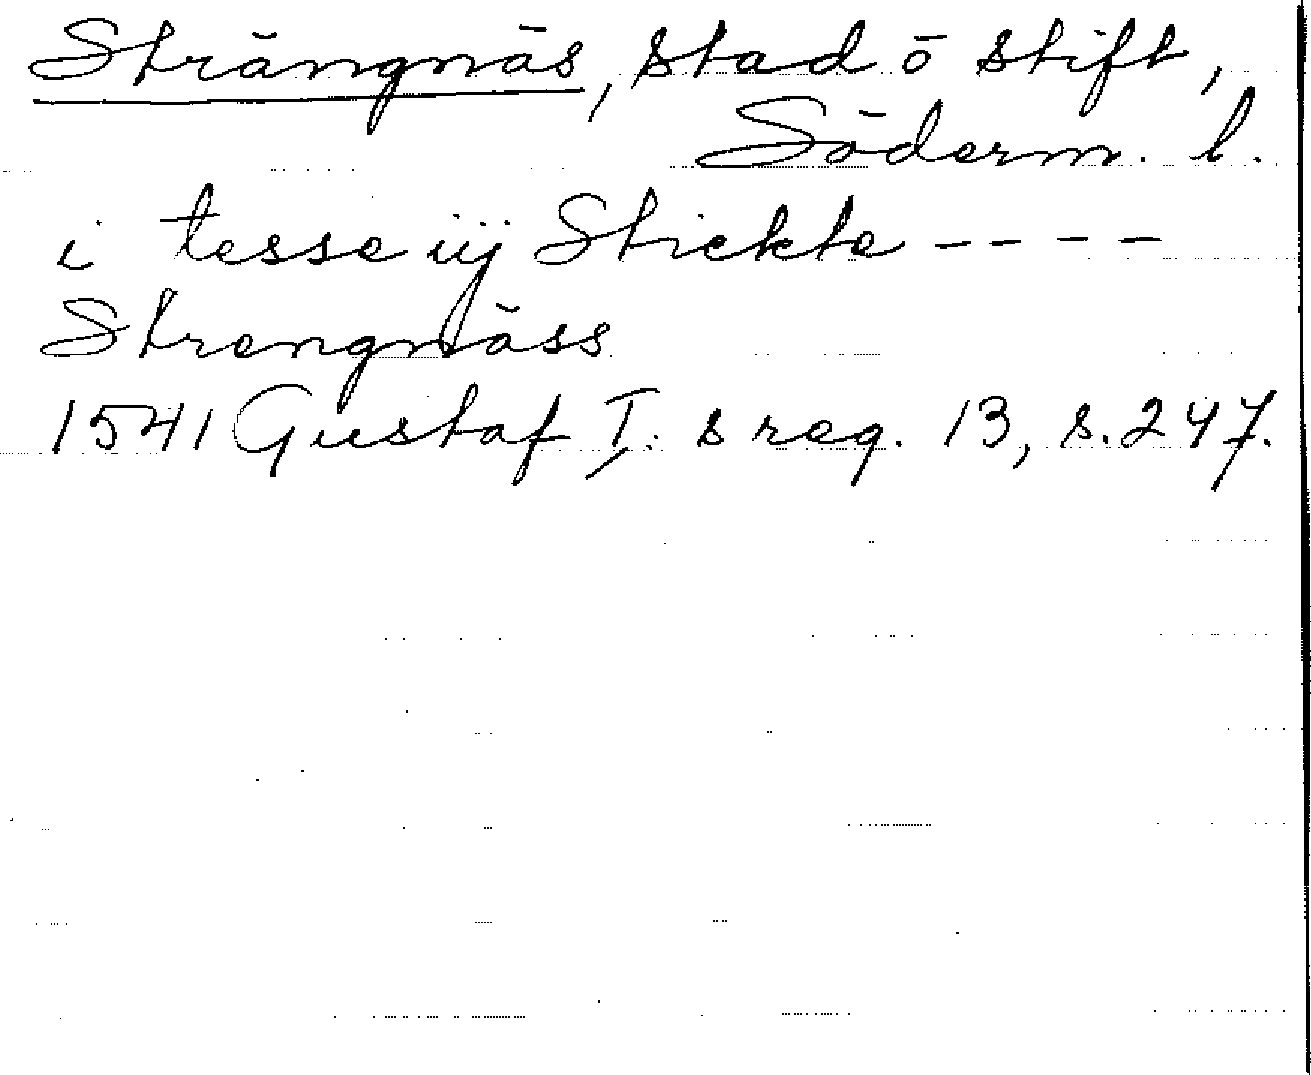 Strängnäs, stad ō stift,
Söderm. l.
i tesse iij Stickte ----
Strengnäss
1541 Gustaf I:s reg. 13, s. 247.